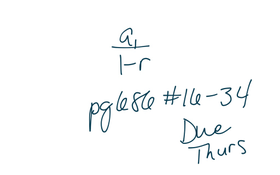 a₁
1-r
pg686 #16-34
Due
Thurs